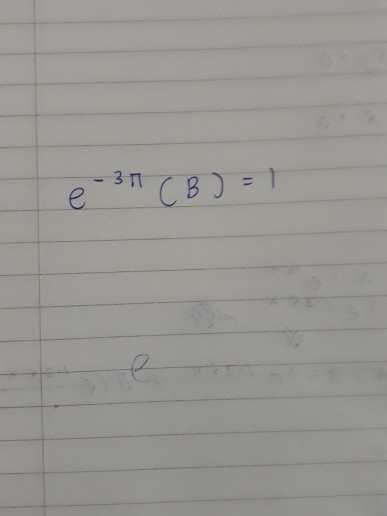 e^{-3π} (B) = 1
e